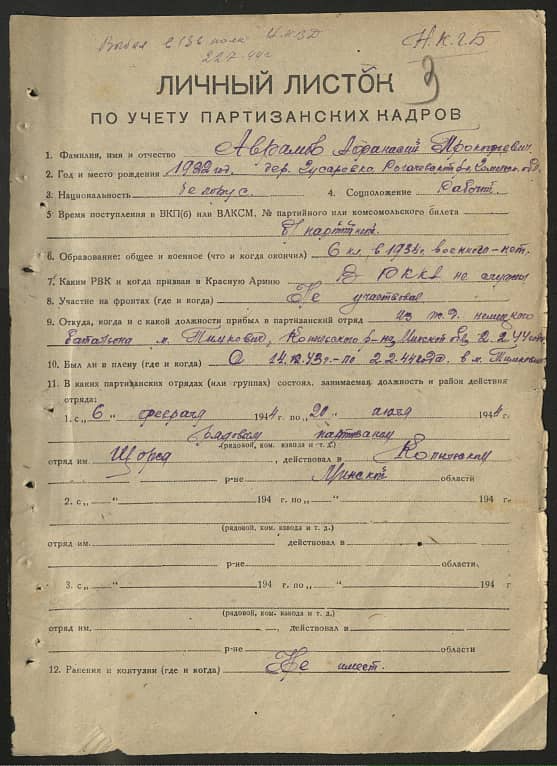 Выбыл в 136 полк НКВД
22.7.44 г.
Н.К.Г.Б
3
ЛИЧНЫЙ ЛИСТОК
ПО УЧЕТУ ПАРТИЗАНСКИХ КАДРОВ
1. Фамилия, имя и отчество Афанасий Прокофьевич
2. Год и место рождения 1922 год. дер. Рогачевск
3. Национальность белорус 4. Соцположение Рабочий
5 Время поступления в ВКП(б) или ВЛКСМ, № партийного или комсомольского билета
б/партийн.
6. Образование: общее и военное (что и когда окончил) 6 кл в 1938г военного-нет.
7. Каким РВК и когда призван в Красную Армию В РККА не служил
8. Участие на фронтах (где и когда) Не участвовал
9. Откуда, когда и с какой должности прибыл в партизанский отряд из ж.д. немецкого
батальона м. Тимковичи, Копыльского р-на Минской обл. 2.2.44 года
10. Был ли в плену (где и когда) С 14.12.43г.-по 2.2.44 года, в м. Тимковичи
11. В каких партизанских отрядах (или группах) состоял, занимаемая должность и район действия
отряда:
1. с „ 6 “ февраля 1944 г. по „ 20 “ июля 1944 г.
Рядовым партизаном
(рядовой, ком. взвода и т. д.)
отряд им. Щорса, действовал в Копыльском
р-не Минской области
2. с „ “ 194 г. по „ “ 194 г.
(рядовой, ком. взвода и т. д.)
отряд им. действовал в
р-не области,
3. с „ “ 194 г. по „ “ 194 г
(рядовой, ком. взвода и т. д.)
отряд им. , действовал в
р-не области
12. Ранения и контузии (где и когда) Не имеет.